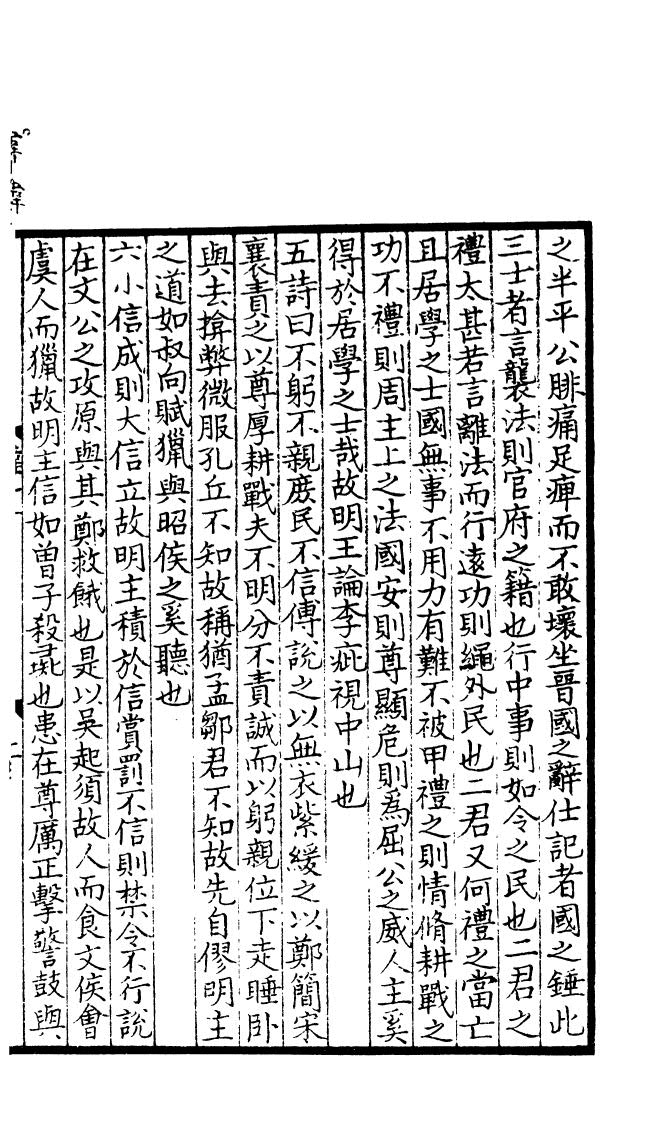 之半平公腓痛足痺而不敢壞坐晉國之辭仕記者國之錘此
三士者言襲法則官府之籍也行中事則如令之民也二君之
禮太甚若言離法而行遠功則繩外民也二君又何禮之當亡
且居學之士國無事不用力有難不被甲禮之則情脩耕戰之
功不禮則周主上之法國安則尊顯危則為屈公之威人主奚
得於居學之士哉故明王論李疵視中山也
五詩曰不躬不親庶民不信傅說之以無衣紫緩之以鄭簡宋
襄責之以尊厚耕戰夫不明分不責誠而以躬親位下走睡卧
與去揜弊微服孔丘不知故稱猶孟鄒君不知故先自僇明主
之道如叔向賦獵與昭侯之奚聽也
六小信成則大信立故明主積於信賞罰不信則禁令不行說
在文公之攻原與其鄭救餓也是以吳起須故人而食文侯會
虞人而獵故明主信如曾子殺彘也患在尊厲正擊警鼓與